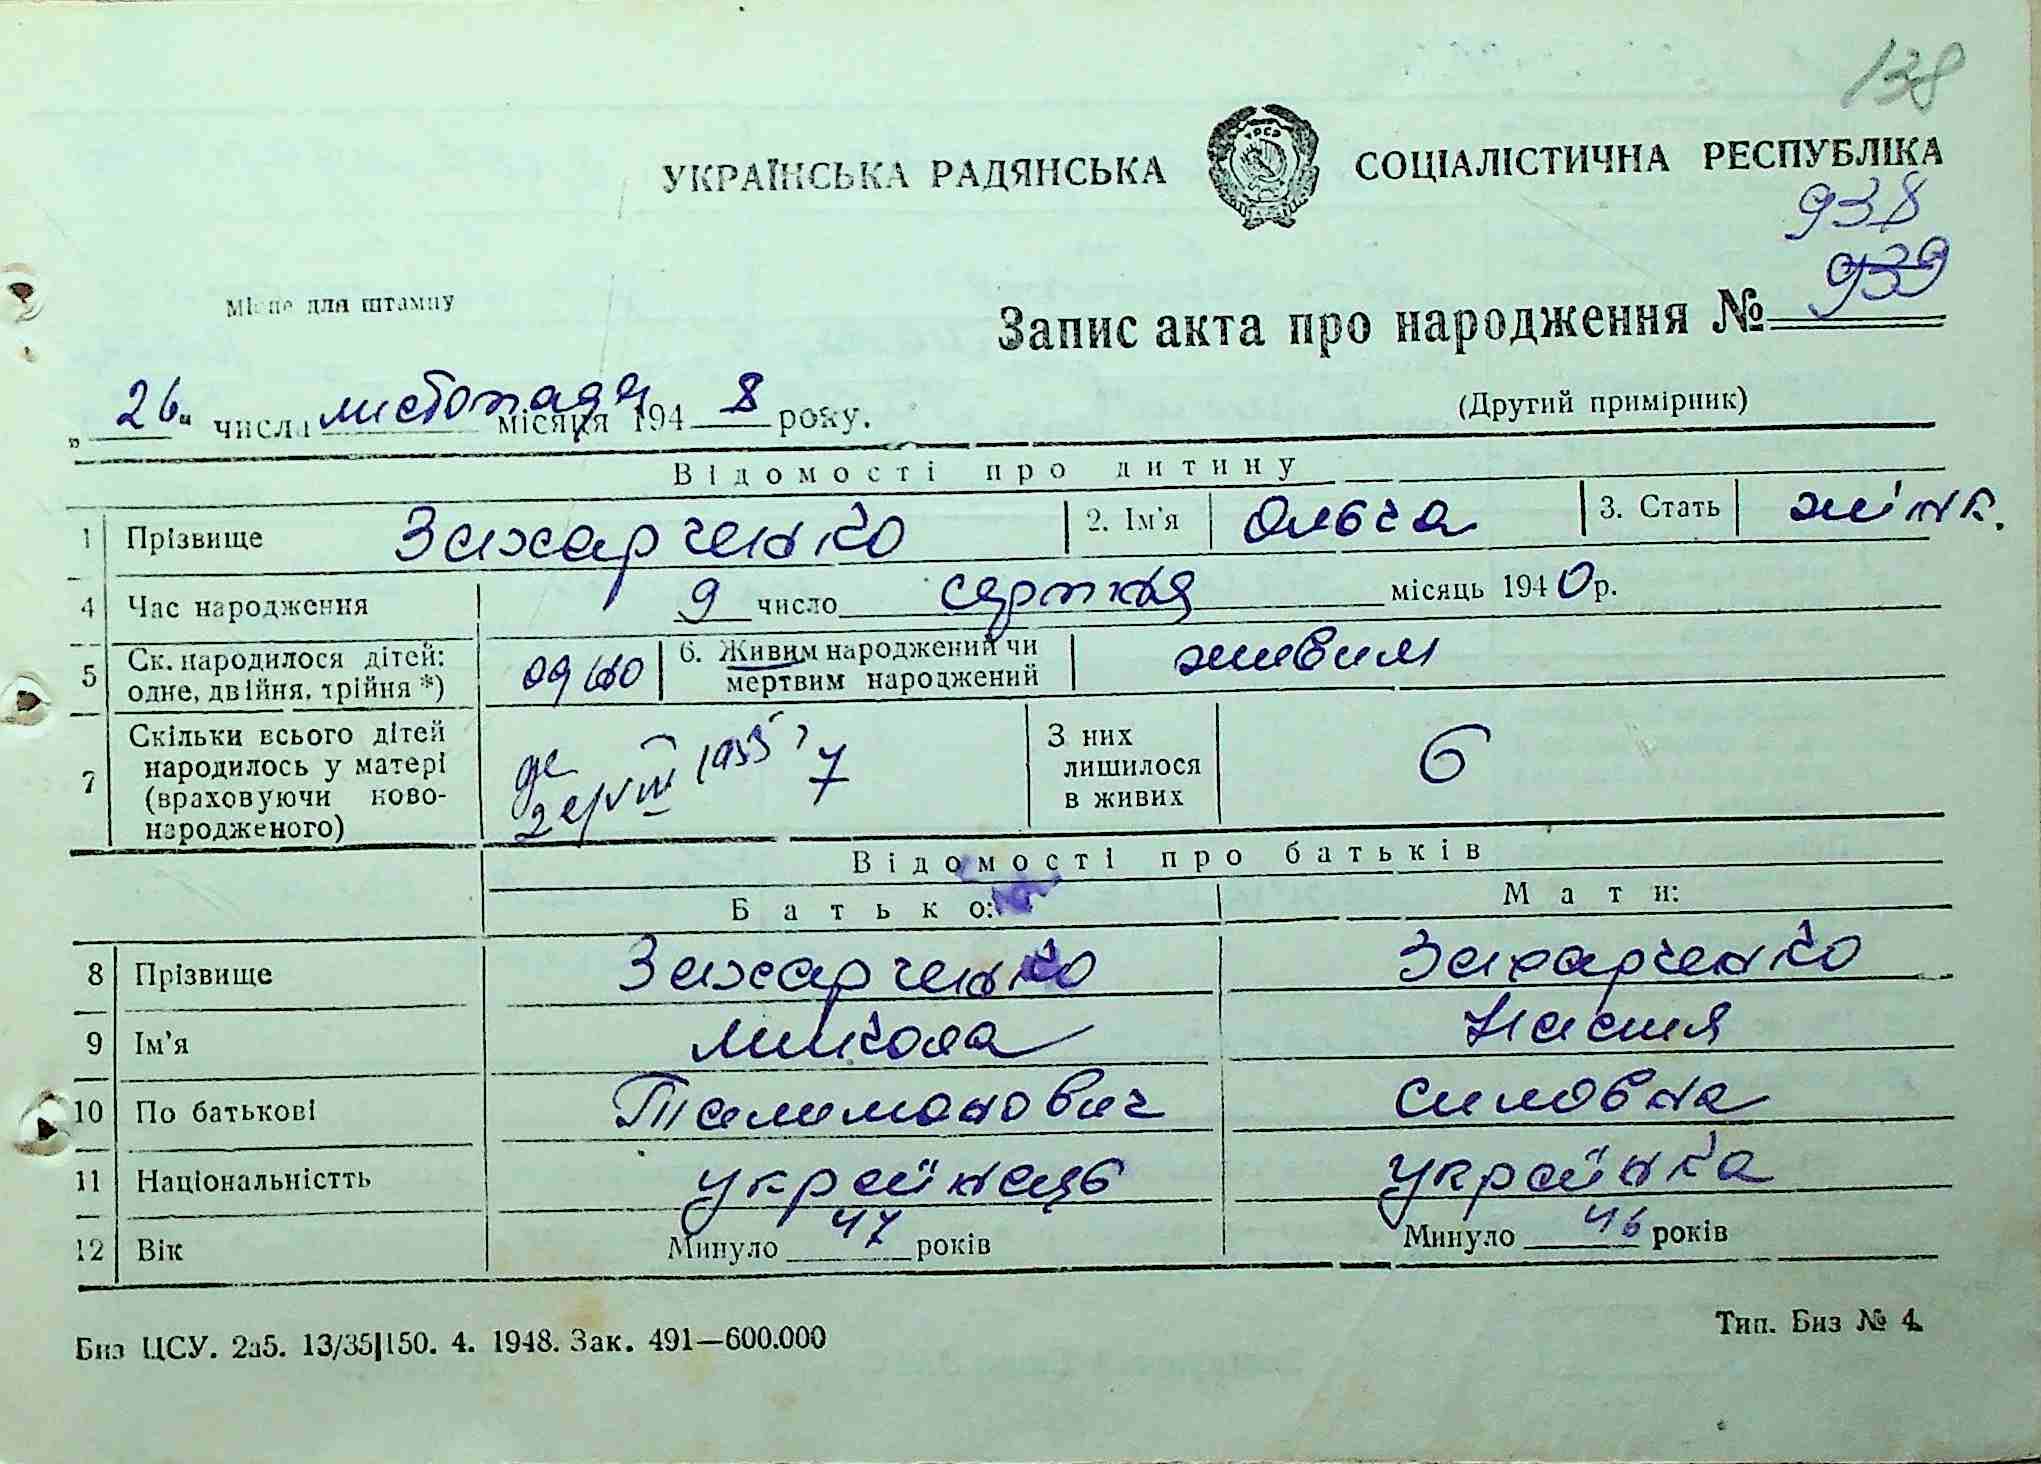 138
УКРАЇНСЬКА РАДЯНСЬКА СОЦІАЛІСТИЧНА РЕСПУБЛІКА
УРСР
938
Місце для штампу
Запис акта про народження № 939
(Другий примірник)
„26“ числа листопада місяця 1948 року.
Відомості про дитину
1 Прізвище Захарченко 2. Ім'я Ольга 3. Стать жінк.
4 Час народження 9 число серпня місяць 1940 р.
5 Ск. народилося дітей: одне, двійня, трійня *) одно 6. Живим народжений чи мертвим народжений живим
7 Скільки всього дітей народилось у матері (враховуючи новонародженого) 7 З них лишилося в живих 6
Відомості про батьків
Батько: Мати:
8 Прізвище Захарченко Захарченко
9 Ім'я Микола Настя
10 По батькові Талимонович Силовна
11 Національністть українець українка
12 Вік Минуло 47 років Минуло 46 років
Биз ЦСУ. 2а5. 13/35|150. 4. 1948. Зак. 491—600.000
Тип. Биз № 4.